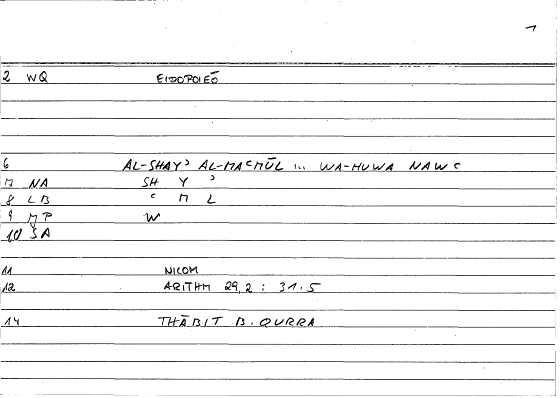 1
2 WQ EIDOPOIEŌ
6 AL-SHAYʾ AL-MAʿMŪL ... WA-HUWA NAWʿ
7 NA SH Y ʾ
8 LB ʿ M L
9 MP W
10 ŠA
11 NICOM
12 ARITHM 29,2 : 31.5
14 THĀBIT B. QURRA